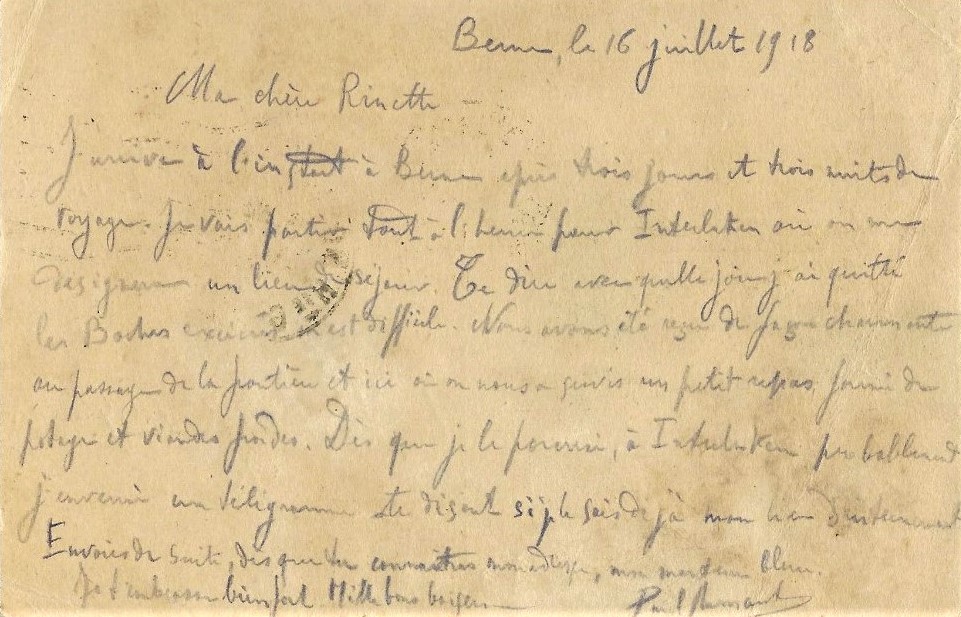 Berne, le 16 juillet 1918
Ma chère Rinette
J'arrive à l'instant à Berne après trois jours et trois nuits de
voyage. Je vais partir tout à l'heure pour Interlaken où on me
désignera un lieu de séjour. Te dire avec quelle joie j'ai quitté
les Boches exécrés est difficile. Nous avons été reçus de façon charmante
au passage de la frontière et ici où on nous a servis un petit repas, formé de
potage et viandes froides. Dès que je le pourrai, à Interlaken probablement
j'enverrai un télégramme te disant si je sais déjà mon lieu d'internement
Envoies de suite, dès que tu connaîtras mon adresse, mon manteau bleu.
Je t'embrasse bien fort. Mille bons baisers
Paul